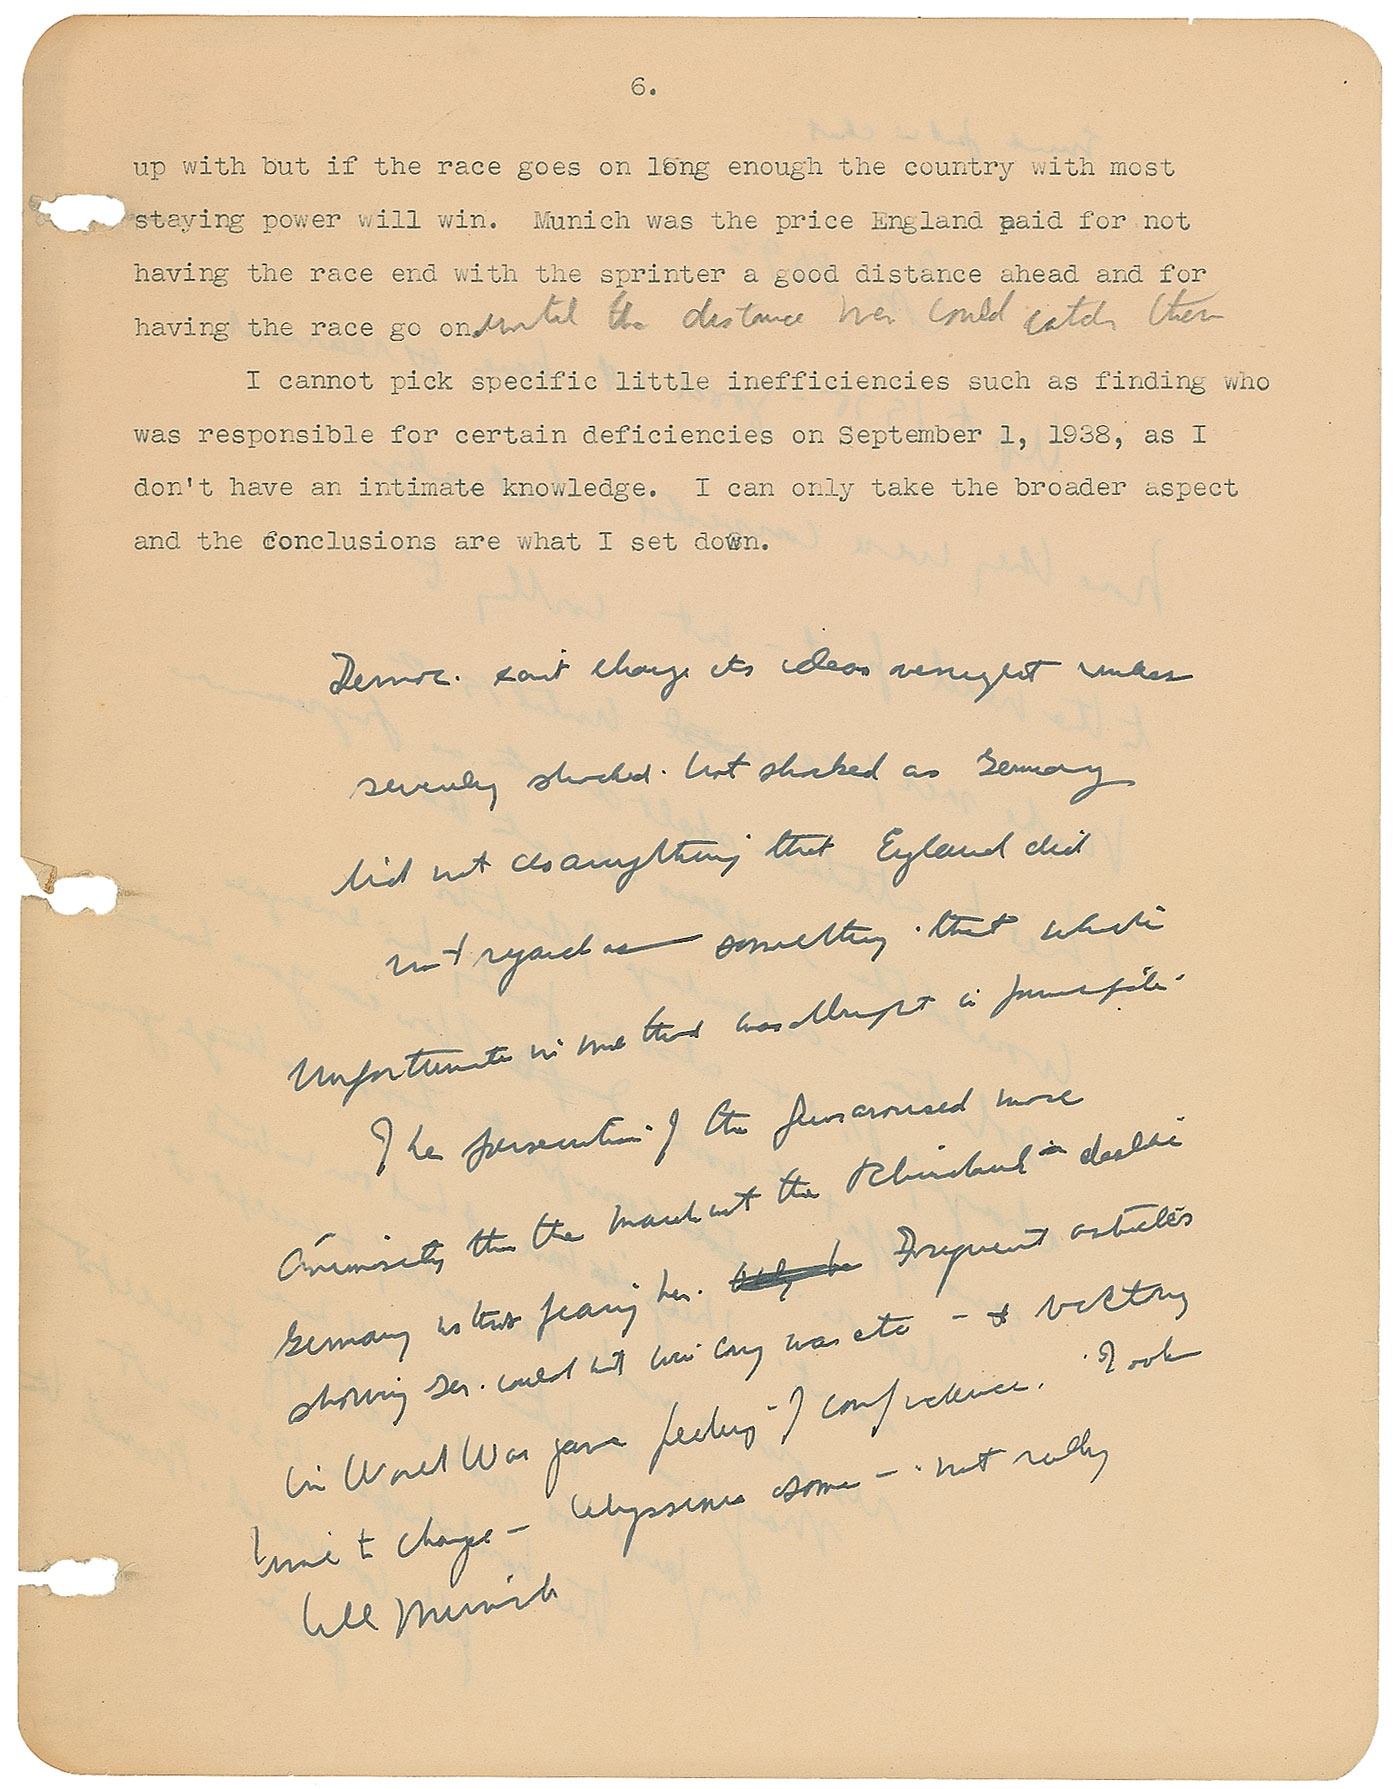 6.
up with but if the race goes on long enough the country with most
staying power will win. Munich was the price England paid for not
having the race end with the sprinter a good distance ahead and for
having the race go on until the distance men could catch them
I cannot pick specific little inefficiencies such as finding who
was responsible for certain deficiencies on September 1, 1938, as I
don't have an intimate knowledge. I can only take the broader aspect
and the conclusions are what I set down.
Democ. can't change its ideas overnight unless
severely shocked. Not shocked as Germany
did not do anything that England did
not regard as something that while
unfortunate in method was alright in principle.
The persecution of the Jews aroused more
animosity than the march into the Rhineland
Germany without fearing her. Frequent articles
showing Ger. could not win long war etc - & victory
in World War gave feeling of confidence. Took
time to change - Abyssinia some - not really
till Munich